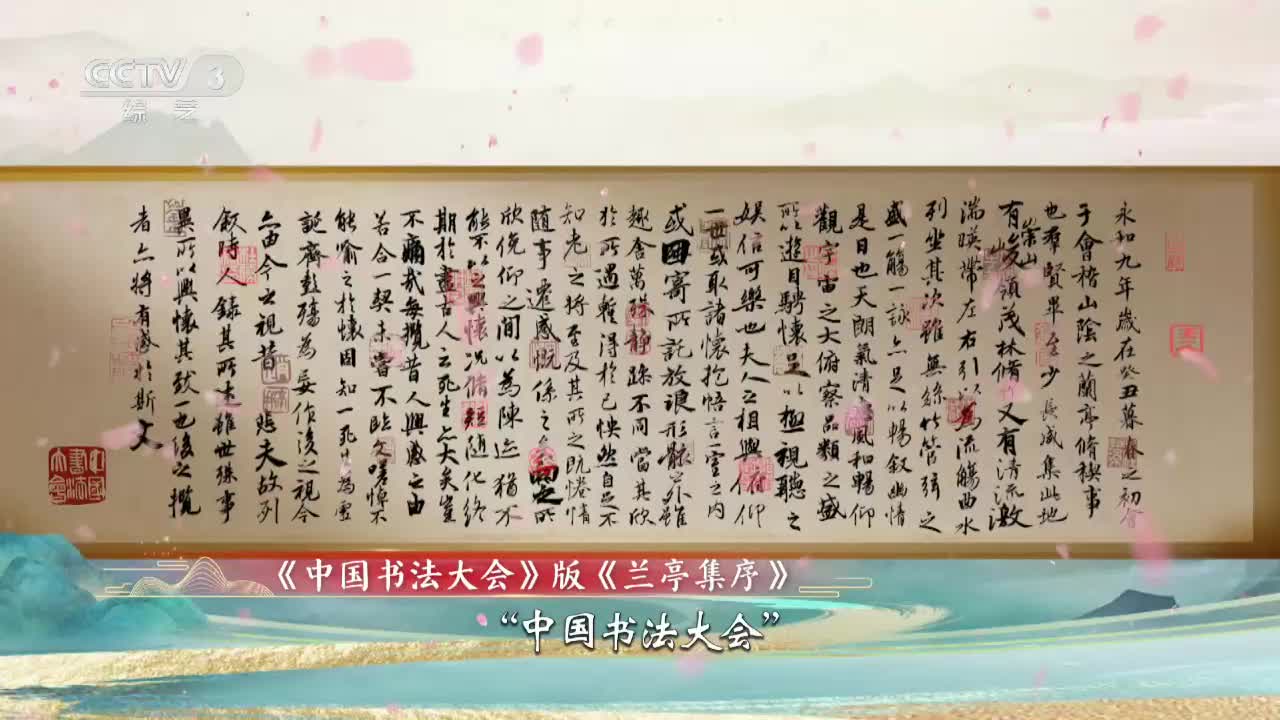 CCTV 3
综艺
永和九年歲在癸丑暮春之初會
于會稽山陰之蘭亭脩禊事
也羣賢畢至少長咸集此地
有崇山峻領茂林脩竹又有清流激
湍暎帶左右引以為流觴曲水
列坐其次雖無絲竹管弦之
盛一觴一詠亦足以暢叙幽情
是日也天朗氣清惠風和暢仰
觀宇宙之大俯察品類之盛
所以遊目騁懷足以極視聽之
娛信可樂也夫人之相與俯仰
一世或取諸懷抱悟言一室之內
或因寄所託放浪形骸之外雖
趣舍萬殊靜躁不同當其欣
於所遇暫得於己怏然自足不
知老之將至及其所之既惓情
隨事遷感慨係之矣向之所
欣俛仰之間以為陳迹猶不
能不以之興懷況脩短隨化終
期於盡古人云死生亦大矣豈
不痛哉每攬昔人興感之由
若合一契未嘗不臨文嗟悼不
能喻之於懷固知一死生為虛
誕齊彭殤為妄作後之視今
亦由今之視昔悲夫故列
敘時人錄其所述雖世殊事
異所以興懷其致一也後之攬
者亦將有感於斯文
中國書法大會
《中国书法大会》版《兰亭集序》
“中国书法大会”